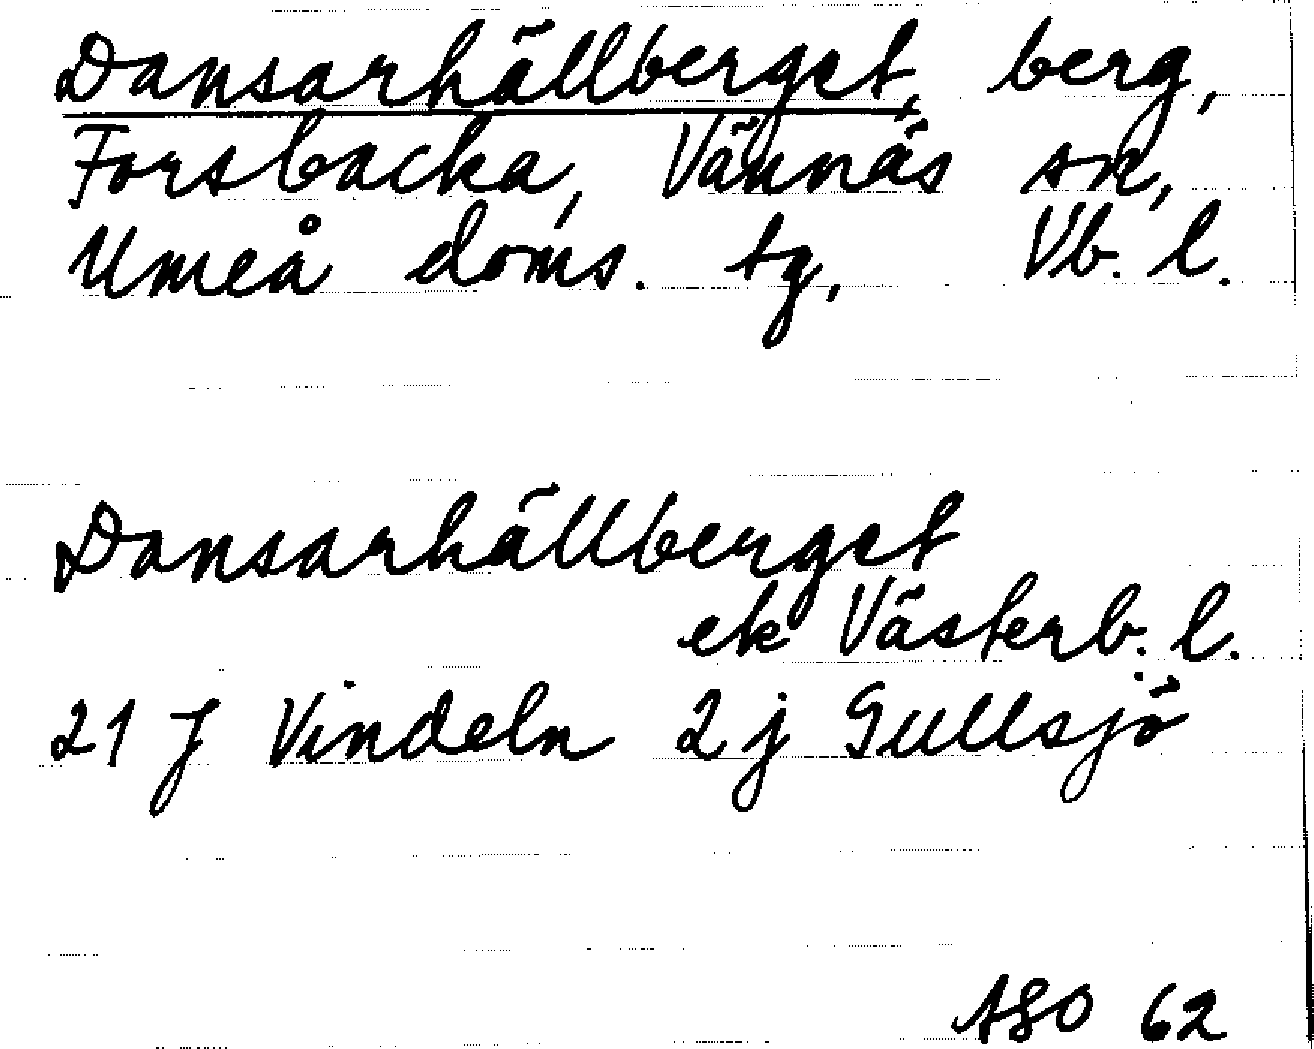 Dansarhällberget, berg,
Forsbacka, Vännäs sn,
Umeå doms. tg, Vb. l.
Dansarhällberget
ek Västerb. l.
21 J Vindeln 2j Gullsjö
ASO 62